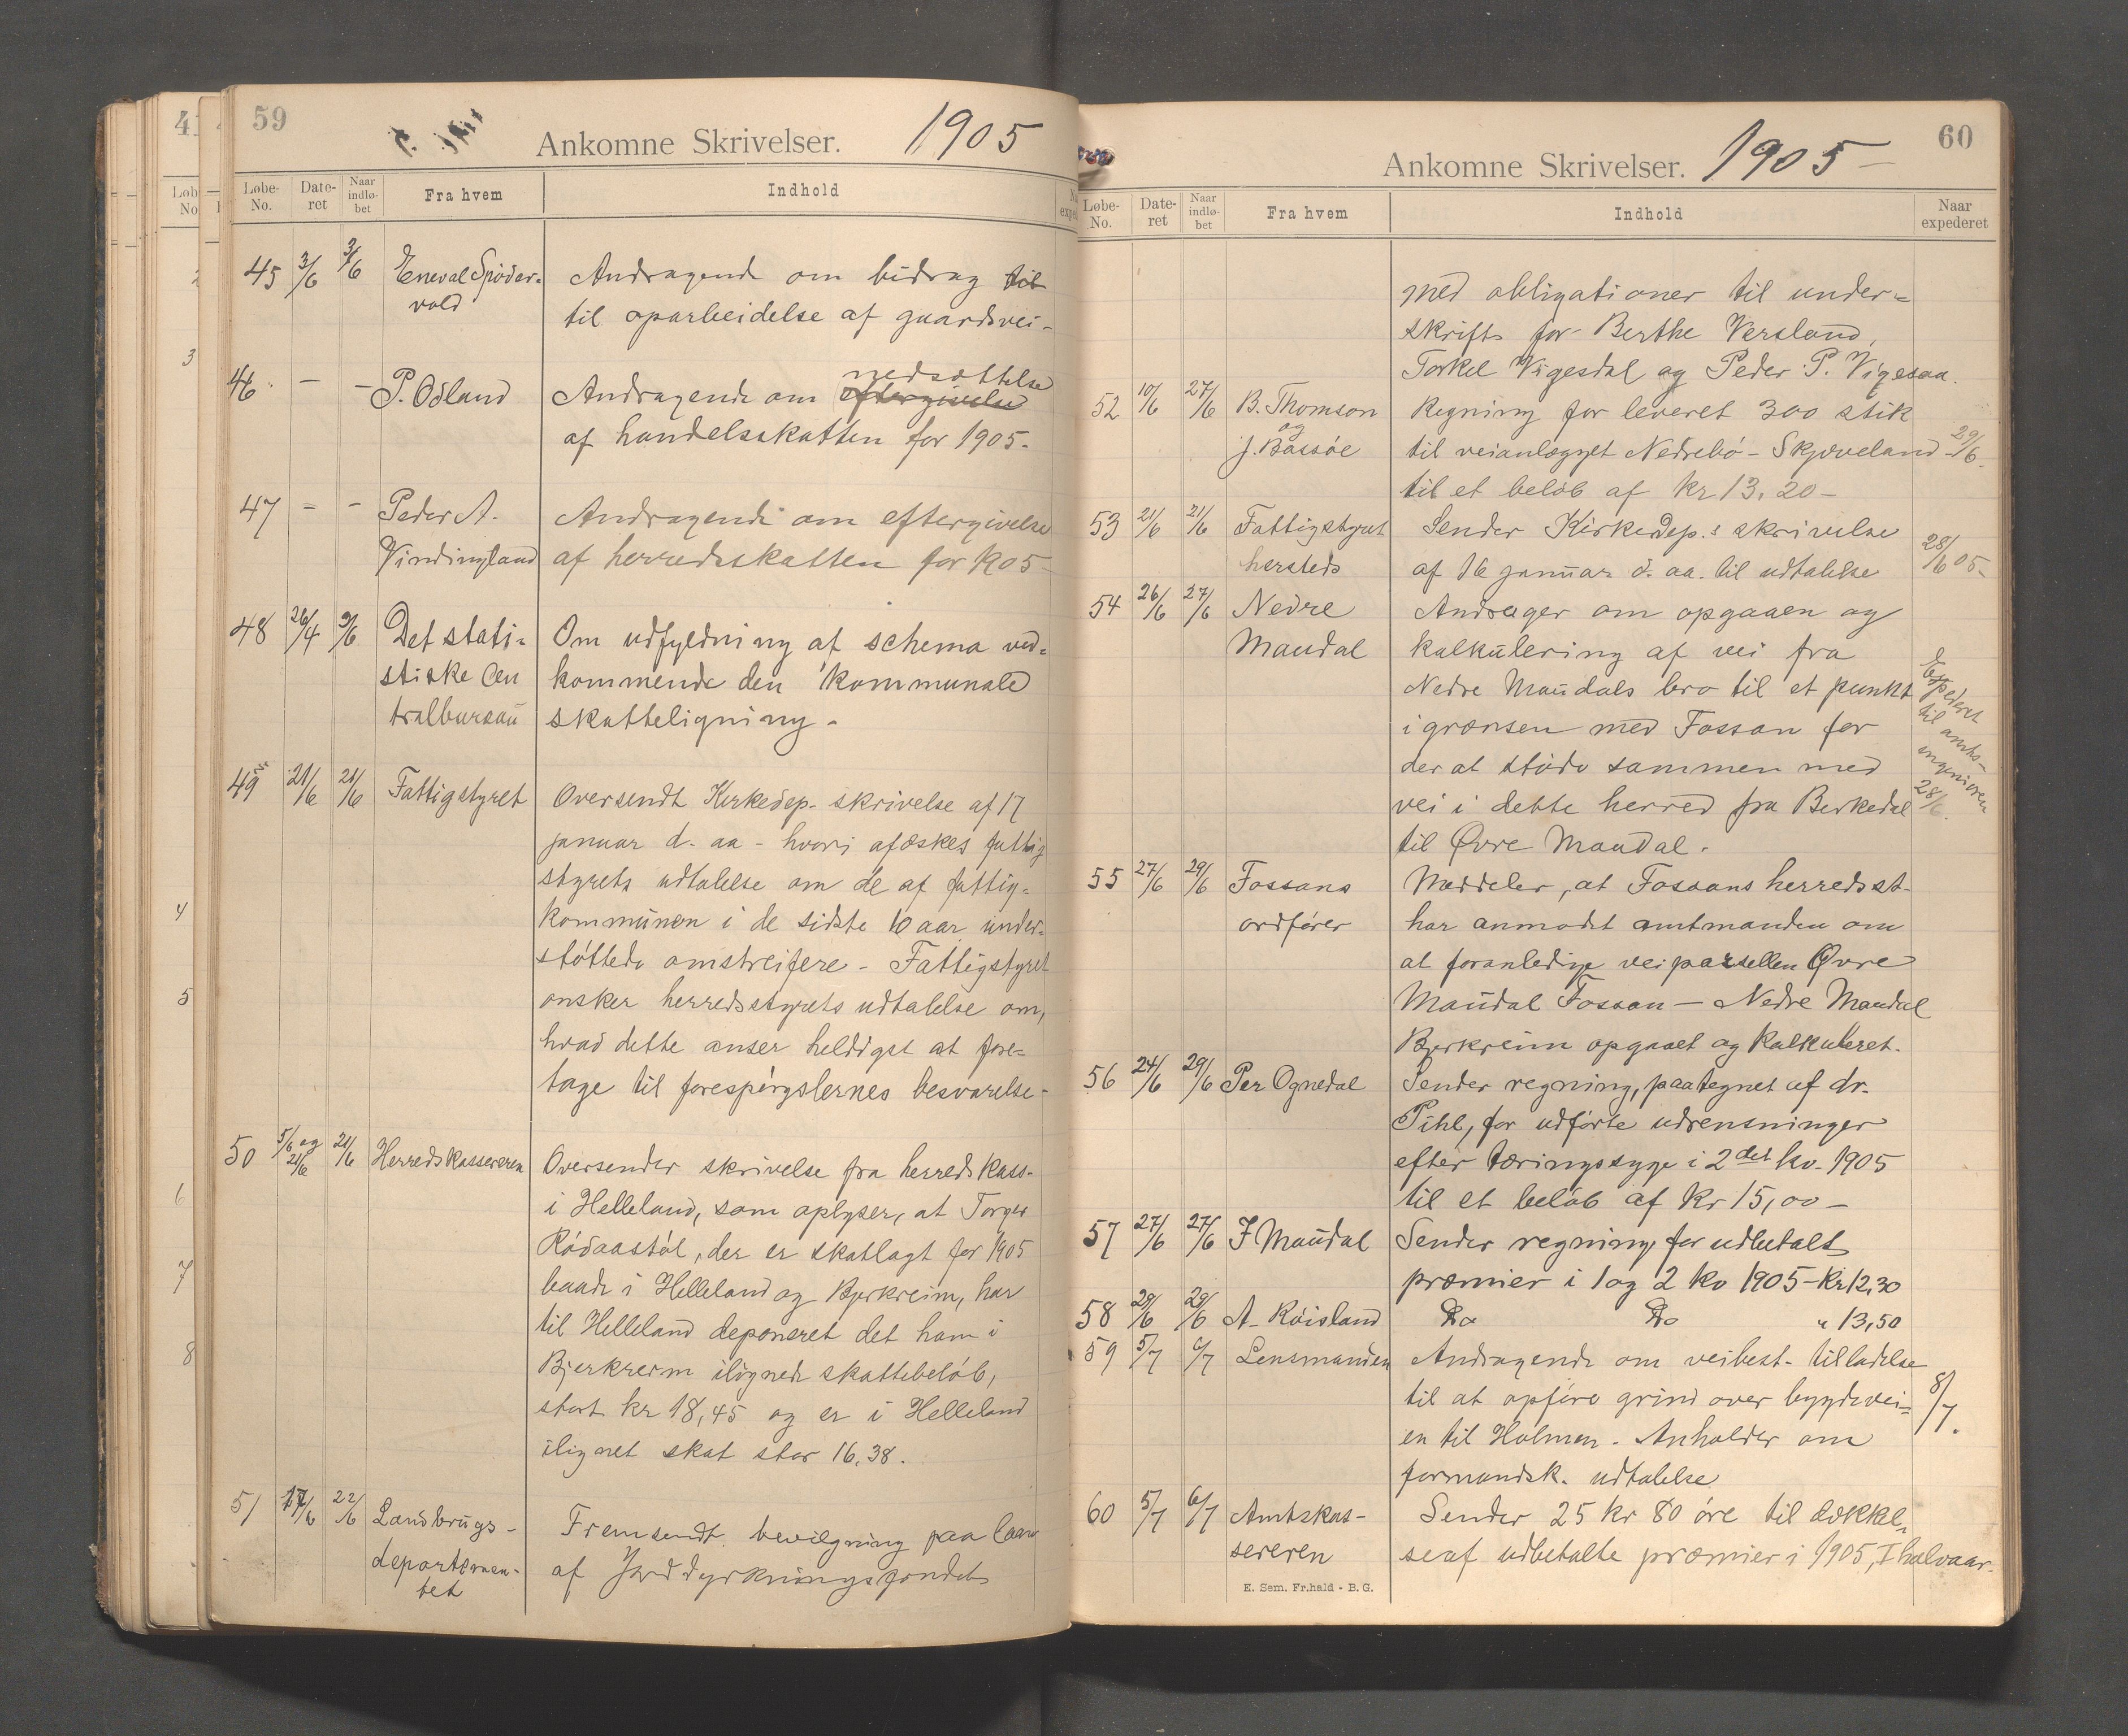 59
Ankomne Skrivelser. 1905
Løbe-No. Date-ret Naar indlø-bet Fra hvem Indhold
45 3/6 3/6 Eneval Spødervold Andragende om bidrag til
til oparbeidelse af gaardsvei-
46. - - P. Odland Andragende om eftergivelse nedsættelse
af handelsskatten for 1905-
47 - - Peder A. Andragende om eftergivelse
Vindingland af herredsskatten for 1905-
48 26/4 9/6 Det stati- Om udfyldning af schema ved-
stiske Cen kommende den kommunale
tralbureau skatteligning-
49 21/6 21/6 Fattigstyret Oversendt Kirkedep- skrivelse af 17
januar d. aa - hvori afæskes fattig
styrets udtalelse om de af fattig-
kommunen i de sidste 10 aar under-
støttede omstreifere - Fattigstyret
ønsker herredsstyrets udtalelse om,
hvad dette anser heldigst at fore-
tage til forespørgslernes besvarelse-
50 5/6 og 21/6 21/6 Herredskassereren Oversender skrivelse fra herredskass-
i Helleland, som oplyser, at Torger
Rødaastøl, der er skatlagt for 1905
baade i Helleland og Bjerkreim, har
til Helleland deponeret det ham i
Bjerkreim ilignede skattebeløb,
stort kr 18,45 og er i Helleland
ilignet skat stor 16,38.
51 17/6 22/6 Landbrugs- Fremsendt bevilgning paa laan
departemen- af Jorddyrkningsfondet
tet
60
Ankomne Skrivelser. 1905-
Løbe-No. Date-ret Naar indlø-bet Fra hvem Indhold Naar expederet
med obligationer til under-
skrift for Berthe Versland,
Torkel Vigesdal og Peder P. Vigesaa.
52 10/6 27/6 B. Thomson Regning for leveret 300 stik
og J. Bassøe til veianlægget Nedrebø - Skjæveland - 29/6
til et beløb af kr 13,20-
53 21/6 21/6 Fattigstyret Sender Kirkedep.s skrivelse
hersteds af 16 januar d. aa. til udtalelse 28/6 05-
54 26/6 27/6 Nedre Andrager om opgaaen og
Maudal kalkulering af vei fra
Nedre Maudals bro til et punkt
i grænsen med Fossan for
der at støde sammen med
vei i dette herred fra Berkedal
til Øvre Maudal.
Expederet til amts-ingeniøren 28/6.
55 27/6 29/6 Fossans Meddeler, at Fossans herredsst-
ordfører har anmodet amtmanden om
at foranledige veiparsellen Øvre
Maudal Fossan - Nedre Maudal
Bjerkreim opgaaet og kalkuleret.
56 24/6 29/6 Per Ognedal Sender regning, paategnet af dr.
Pihl, for udførte udrensninger
efter tæringssyge i 2det kv- 1905
til et beløb af Kr 15,00-
57 27/6 27/6 I Maudal Sender regning for udbetalt
præmier i 1 og 2 kv 1905 - Kr 12,30
58 29/6 29/6 A- Røisland Do Do " 13,50
59 5/7 6/7 Lensmanden Andragende om veibest- tilladelse
til at opføre grind over bygdevei-
en til Holmen - Anholder om 8/7.
formandsk. udtalelse
60 5/7 6/7 Amtskas- Sender 25 kr 80 øre til dækkel-
sereren se af udbetalte præmier i 1905, I halvaar.
E. Sem. Fr.hald - B.G.